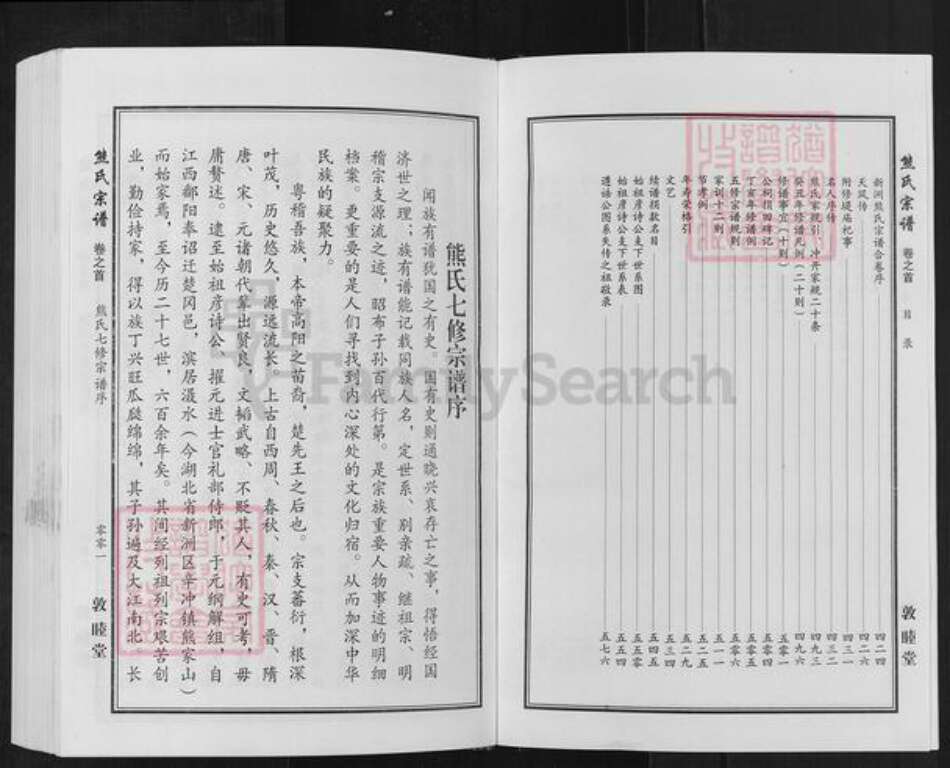 熊氏宗谱 卷之首 目录 敦睦堂
新洲熊氏宗谱合卷序 四二四
天叙传 四二六
附修堤庙祀事 四三一
名人序传 四三二
熊氏家规引、冲开家规二十条 四九三
癸亥年修谱凡例(二十则) 四九六
修谱事宜(十则) 五〇一
公祠捐田碑记 五〇四
丁亥年修谱例 五〇五
五修宗谱规则 五〇六
家训十二则 五一一
节孝例 五二五
年寿荣格引 五二九
文艺 五三四
续谱捐款名目 五四五
始祖彦诗公支下世系图 五五四
始祖彦诗公支下世系表
遵语公图系失传之祖敬录 五七六
熊氏七修宗谱序
闻族有谱犹国之有史。国有史则通晓兴衰存亡之事,得悟经国
济世之理;族有谱能记载同族人名,定世系、别亲疏、继祖宗、明
稽宗支源流之迹,昭布子孙百代行第。是宗族重要人物事迹的明细
档案。更重要的是人们寻找到内心深处的文化归宿。从而加深中华
民族的凝聚力。
粤稽吾族,本帝高阳之苗裔,楚先王之后也。宗支蕃衍,根深
叶茂,历史悠久,源远流长。上古自西周、春秋、秦、汉、晋、隋
唐、宋、元诸朝代辈出贤良,文韬武略、不贬其人,有史可考,毋
庸赘述。逮至始祖彦诗公,擢元进士官礼部侍郎,于元纲解组,自
江西鄱阳奉诏迁楚冈邑,滨居滠水(今湖北省新洲区辛冲镇熊家山)
而始家焉,至今历二十七世,六百余年矣。其间经列祖列宗艰苦创
业,勤俭持家,得以族丁兴旺瓜瓞绵绵,其子孙遍及大江南北。长
熊氏宗谱 卷之首 熊氏七修宗谱序 零零一 敦睦堂
FamilySearch